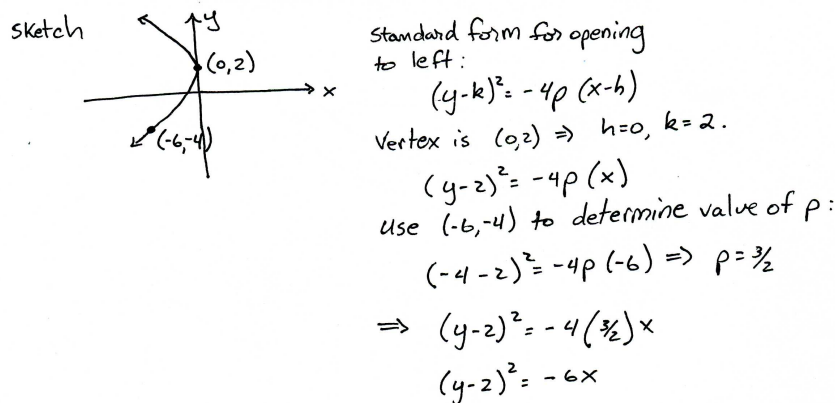 sketch
y
(0,2)
x
(-6,-4)
Standard form for opening
to left:
(y-k)²= -4p (x-h)
Vertex is (0,2) ⇒ h=0, k=2.
(y-2)²= -4p (x)
Use (-6,-4) to determine value of p:
(-4-2)²= -4p (-6) ⇒ p= 3/2
⇒ (y-2)²= -4(3/2)x
(y-2)²= -6x